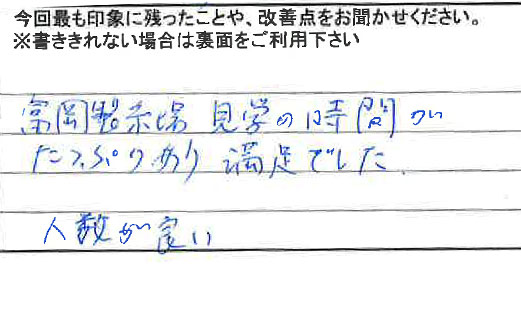 今回最も印象に残ったことや、改善点をお聞かせください。
※書ききれない場合は裏面をご利用下さい
富岡製糸場 見学の時間が
たっぷりあり 満足でした.
人数が良い